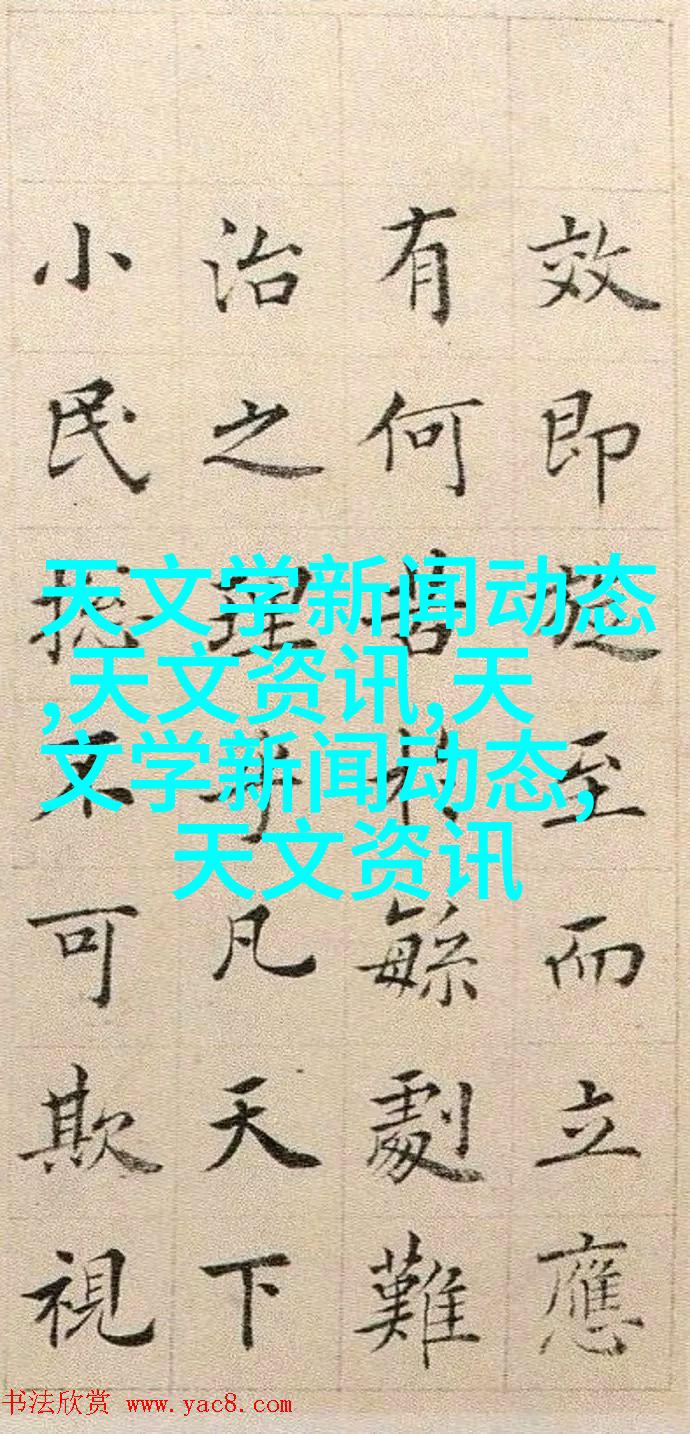 效即至而立應
有何緐劇難
治之理凡天下
小民不可欺視
天文学新闻动态
,天文资讯,天
文学新闻动态,
天文资讯
书法欣赏 www.yac8.com